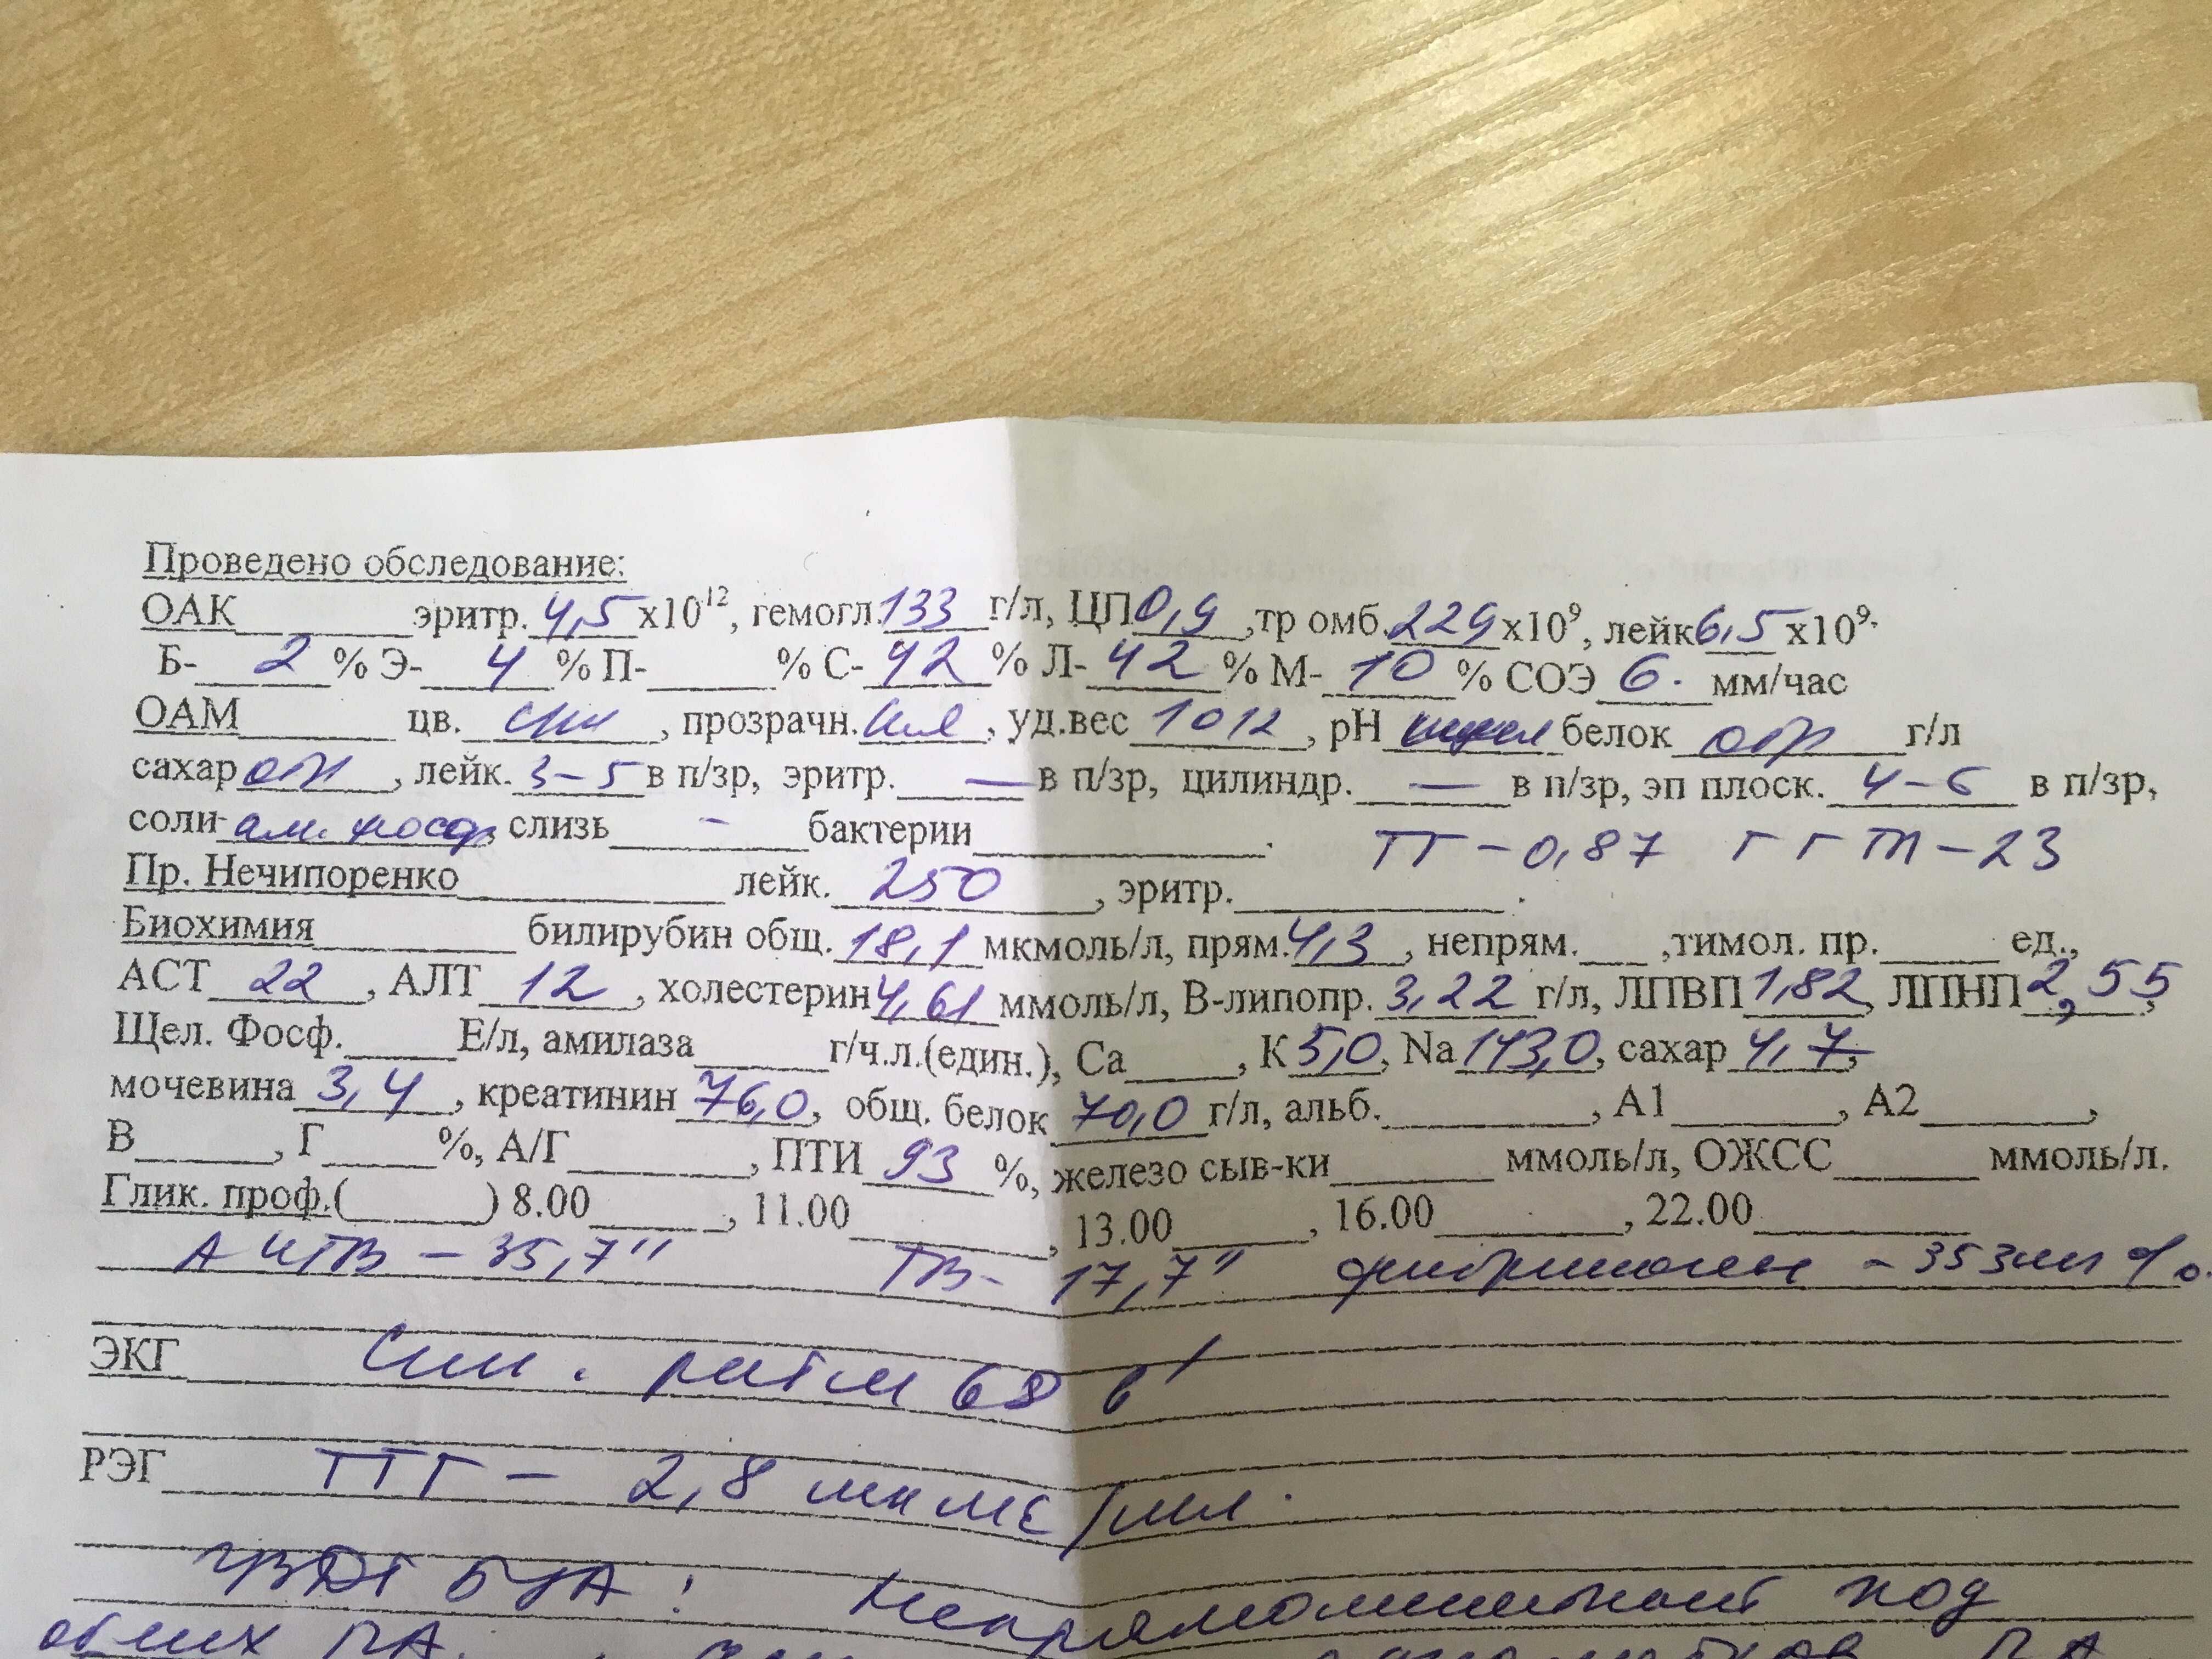 Проведено обследование:
ОАК______эритр. 4,5 x10¹², гемогл. 133 г/л, ЦП 0,9, тр омб. 229 x10⁹, лейк 6,5 x10⁹.
Б- 2 % Э- 4 % П-____% С- 42 % Л- 42 % М- 10 % СОЭ 6. мм/час
ОАМ______ цв. , прозрачн. , уд.вес 1012, рН белок отр г/л
сахар отр, лейк. 3-5 в п/зр, эритр. — в п/зр, цилиндр. — в п/зр, эп плоск. 4-6 в п/зр,
соли- ам. фосф, слизь - бактерии______.
ТГ - 0,87 ГГТП - 23
Пр. Нечипоренко______ лейк. 250, эритр.______.
Биохимия______ билирубин общ. 18,1 мкмоль/л, прям. 4,3, непрям.___,тимол. пр.____ ед.,
АСТ 22, АЛТ 12, холестерин 4,61 ммоль/л, В-липопр. 3,22 г/л, ЛПВП 1,82, ЛПНП 2,55,
Щел. Фосф.____Е/л, амилаза____г/ч.л.(един.), Са____, К 5,0, Na 143,0, сахар 4,7,
мочевина 3,4, креатинин 76,0, общ. белок 70,0 г/л, альб.______, А1______, А2______,
В____, Г____%, А/Г______, ПТИ 93 %, железо сыв-ки______ ммоль/л, ОЖСС____ ммоль/л.
Глик. проф.(______) 8.00____, 11.00______, 13.00____, 16.00______, 22.00______
АЧТВ - 35,7" ТВ - 17,7" фибриноген - 353 мг%.
ЭКГ Син. ритм 68 в'
РЭГ ТТГ - 2,8 мкМЕ/мл.
УЗДГ БЦА: Непрямолинейность ход
обеих ПА.